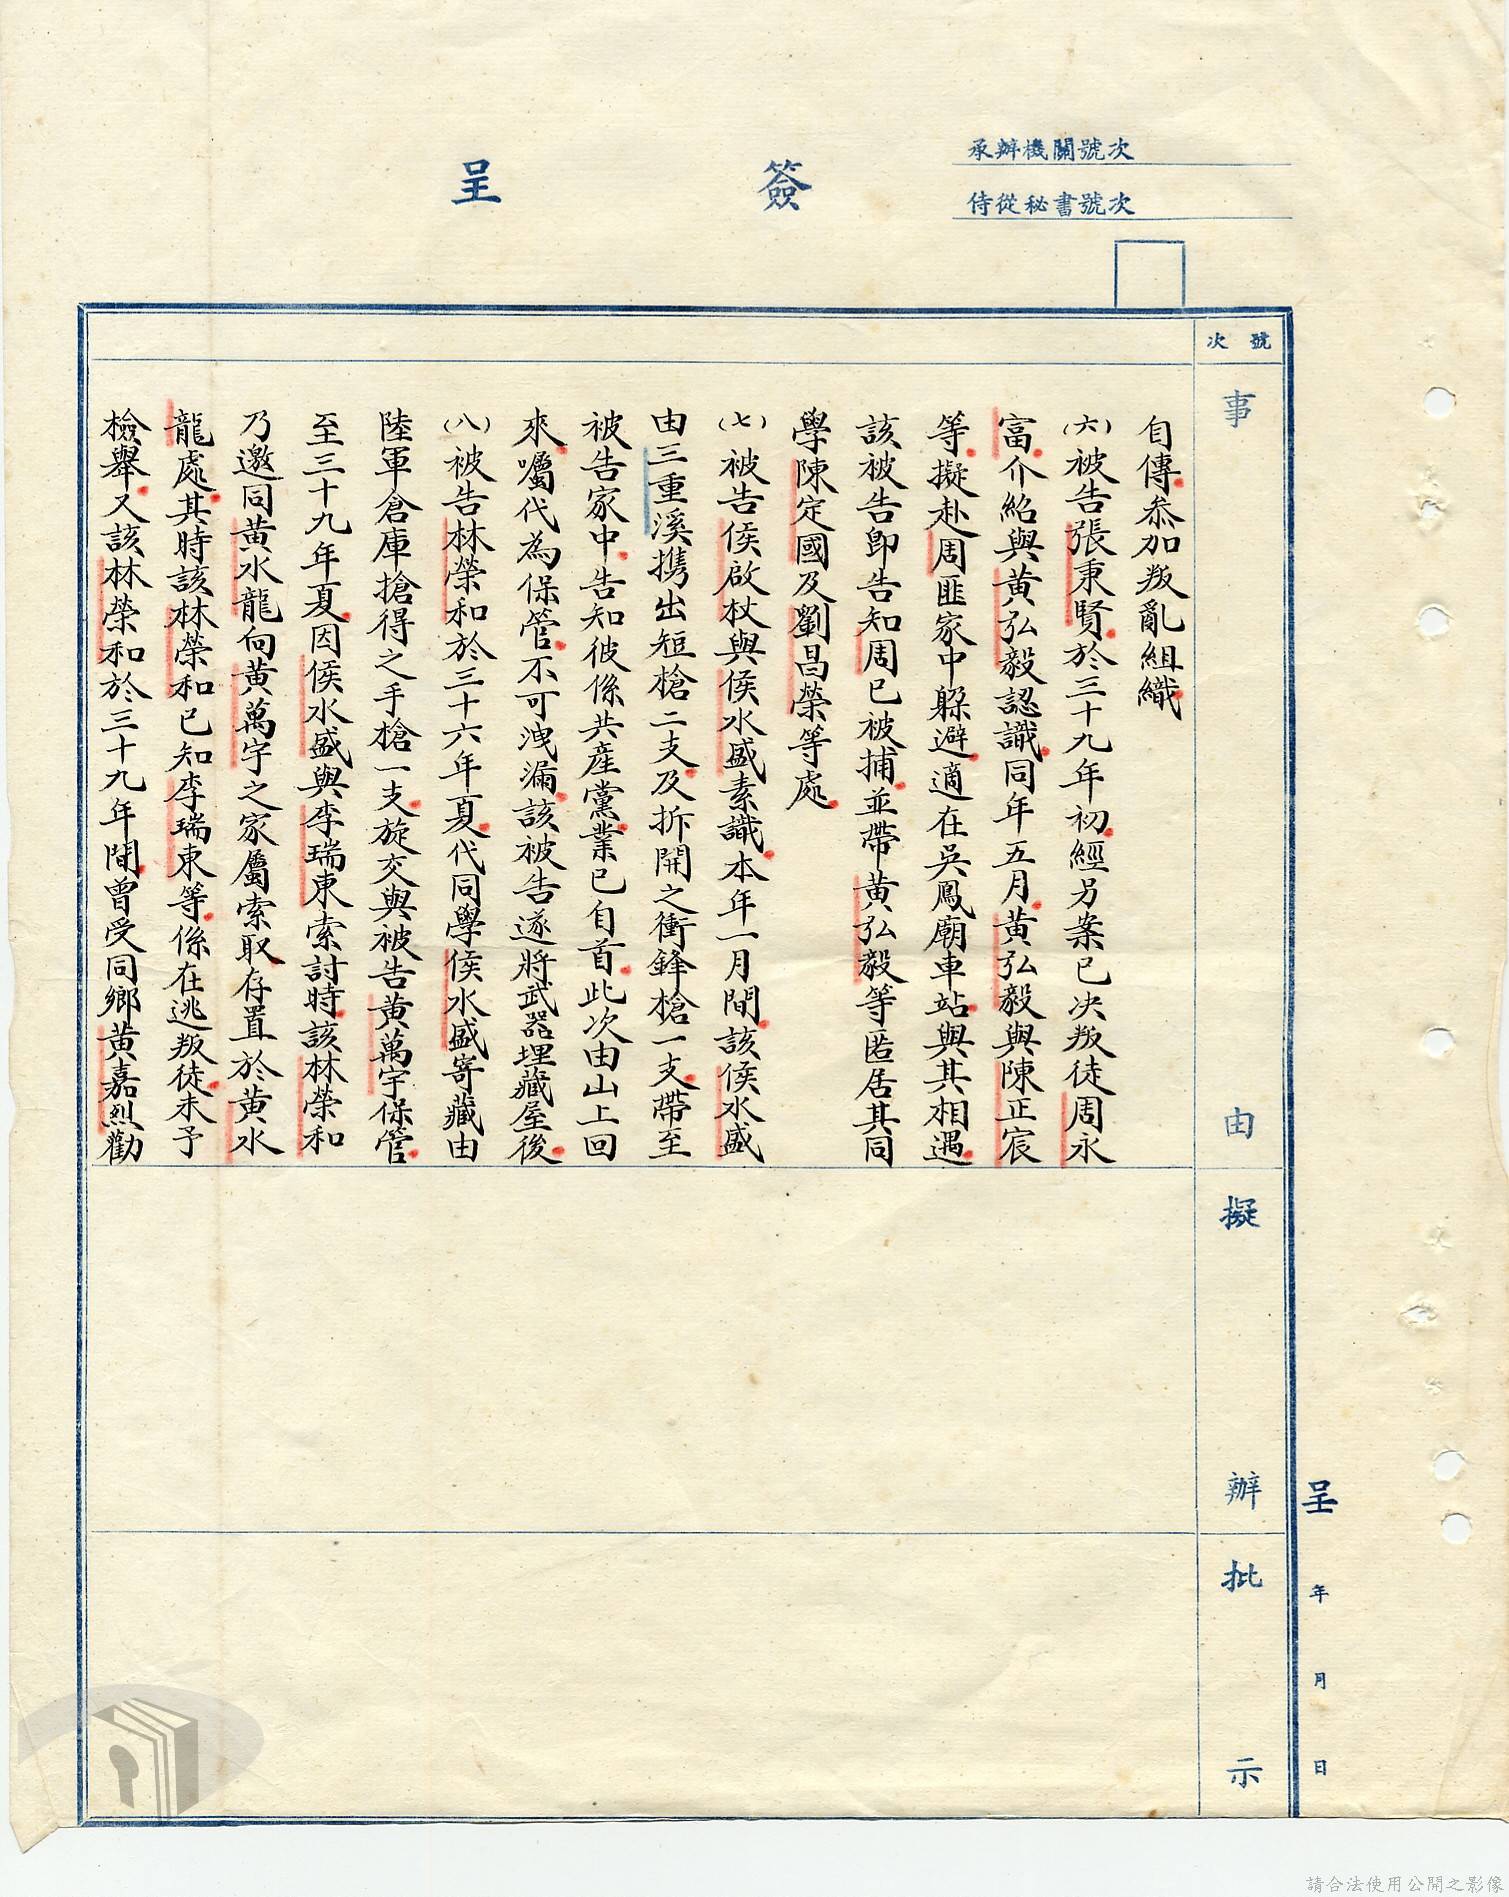 承辦機關號次
侍從秘書號次
簽呈
號次
事由
擬辦
批示
呈 年 月 日
自傳。參加叛亂組織。
(六)被告張秉賢。於三十九年初。經另案已決叛徒周永
富。介紹與黃弘毅認識。同年五月。黃弘毅與陳正宸
等。擬赴周匪家中躲避。適在吳鳳廟車站。與其相遇。
該被告即告知周已被捕。並帶黃弘毅等匿居其同
學陳定國及劉昌榮等處。
(七)被告侯啟杖與侯水盛素識。本年一月間。該侯水盛
由三重溪携出短槍二支。及拆開之衝鋒槍一支。帶至
被告家中。告知彼係共產黨。業已自首。此次由山上回
來。囑代為保管。不可洩漏。該被告遂將武器埋藏屋後。
(八)被告林榮和於三十六年夏。代同學侯水盛寄藏由
陸軍倉庫搶得之手槍一支。旋交與被告黃萬宇保管。
至三十九年夏。因侯水盛與李瑞東索討時。該林榮和
乃邀同黃水龍向黃萬宇之家屬索取。存置於黃水
龍處。其時該林榮和已知李瑞東等。係在逃叛徒。未予
檢舉。又該林榮和於三十九年間。曾受同鄉黃嘉烈勸
請合法使用公開之影像